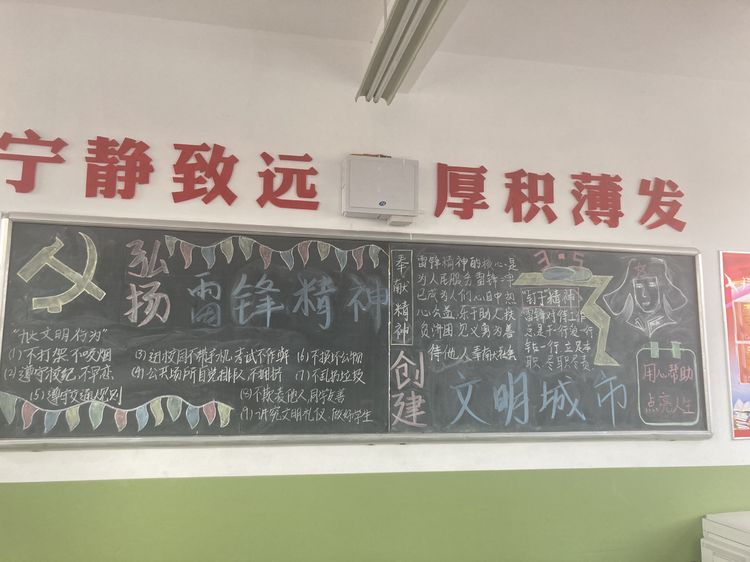 宁静致远
厚积薄发
弘扬
雷锋精神
"九大文明行为"
(1)不打架 不吸烟
(2)遵守校纪,不早恋
(3)进校园不带手机 考试不作弊
(4)公共场所自觉排队 不拥挤
(5)遵守交通规则
(6)不损坏公物
(7)不乱扔垃圾
(8)不欺负他人 同学友善
(9)讲究文明礼仪 做好学生
奉献精神
雷锋精神的核心是
为人民服务 雷锋
已成为人们心目中热
心公益 乐于助人 扶
贫济困 见义勇为 善
待他人 奉献社会
3.5
钉子精神
雷锋对待工作
总是干一行爱一行
钻一行 立足本
职 尽职尽责
创建
文明城市
用心帮助
点亮人生